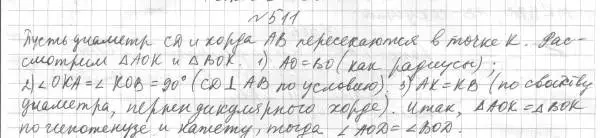 №511
Пусть диаметр CD и хорда AB пересекаются в точке K. Рас-
смотрим △AOK и △BOK. 1) AO=BO (как радиусы);
2) ∠OKA=∠KOB=90° (CD⊥AB по условию). 3) AK=KB (по свойству
диаметра, перпендикулярного хорде). Итак, △AOK=△BOK
по гипотенузе и катету, тогда ∠AOD=∠BOD.